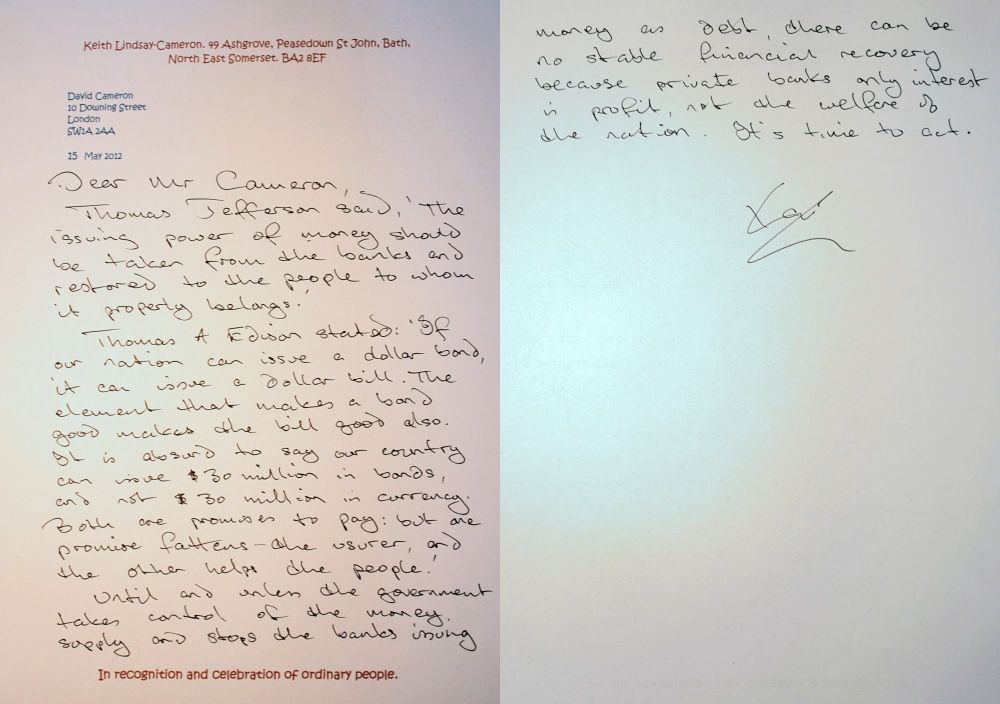 Keith Lindsay-Cameron. 99 Ashgrove, Peasedown St John, Bath,
North East Somerset. BA2 8EF
David Cameron
10 Downing Street
London
SW1A 2AA
15 May 2012
Dear Mr Cameron,
Thomas Jefferson said, 'The
issuing power of money should
be taken from the banks and
restored to the people to whom
it properly belongs.'
Thomas A Edison stated: 'If
our nation can issue a dollar bond,
it can issue a dollar bill. The
element that makes a bond
good makes the bill good also.
It is absurd to say our country
can issue $30 million in bonds,
and not $30 million in currency.
Both are promises to pay: but one
promise fattens the usurer, and
the other helps the people.'
Until and unless the government
takes control of the money
supply and stops the banks issuing
In recognition and celebration of ordinary people.
money as debt, there can be
no stable financial recovery
because private banks only interest
is profit, not the welfare of
the nation. It's time to act.